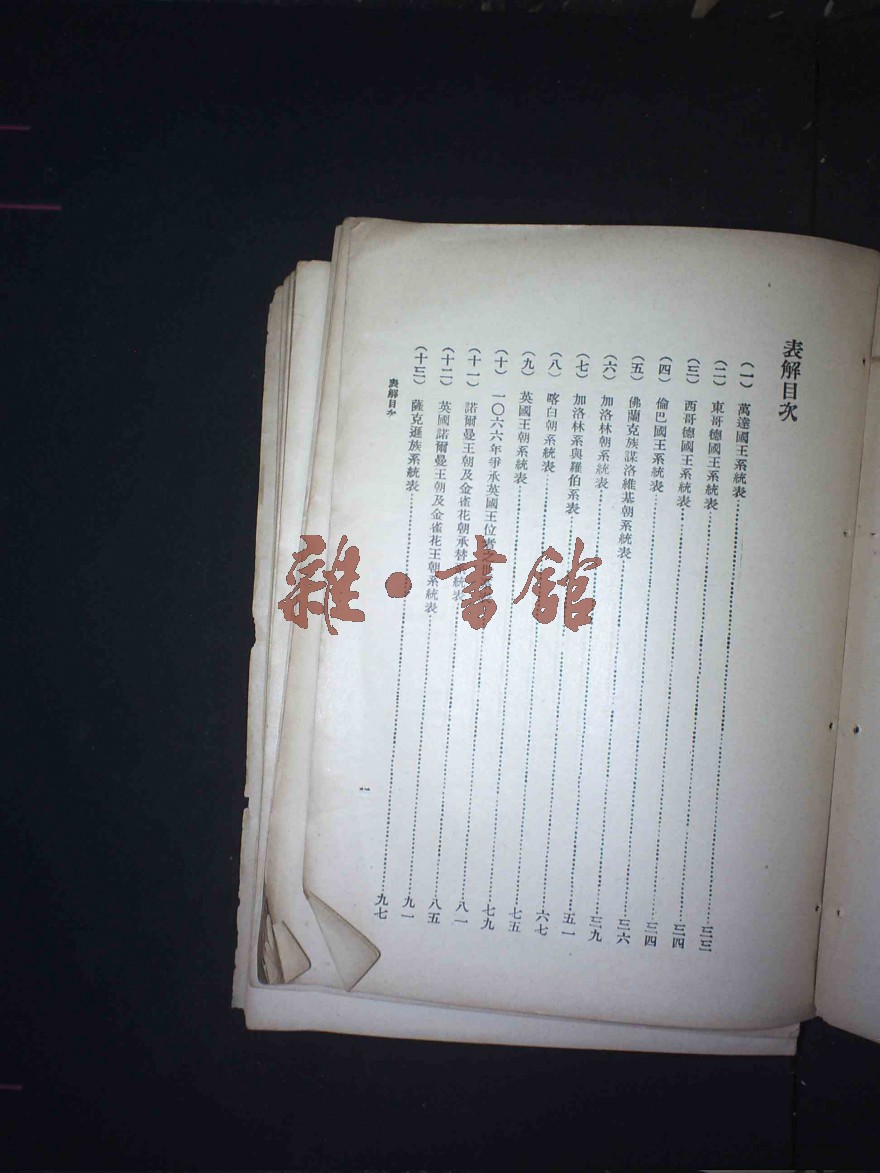 表解目次
(一) 萬達國王系統表……三三
(二) 東哥德國王系統表……三四
(三) 西哥德國王系統表……三四
(四) 倫巴國王系統表……三六
(五) 佛蘭克族謀洛維基朝系統表……三九
(六) 加洛林朝系統表……五一
(七) 加洛林系與羅伯系表……六七
(八) 喀白朝系統表……七五
(九) 英國王朝系統表……七九
(十) 一〇六六年爭承英國王位者……八一
(十一) 諾爾曼王朝及金雀花朝承替統表……八五
(十二) 英國諾爾曼王朝及金雀花王朝系統表……九一
(十三) 薩克遜族系統表……九七
表解目次
雜·書館